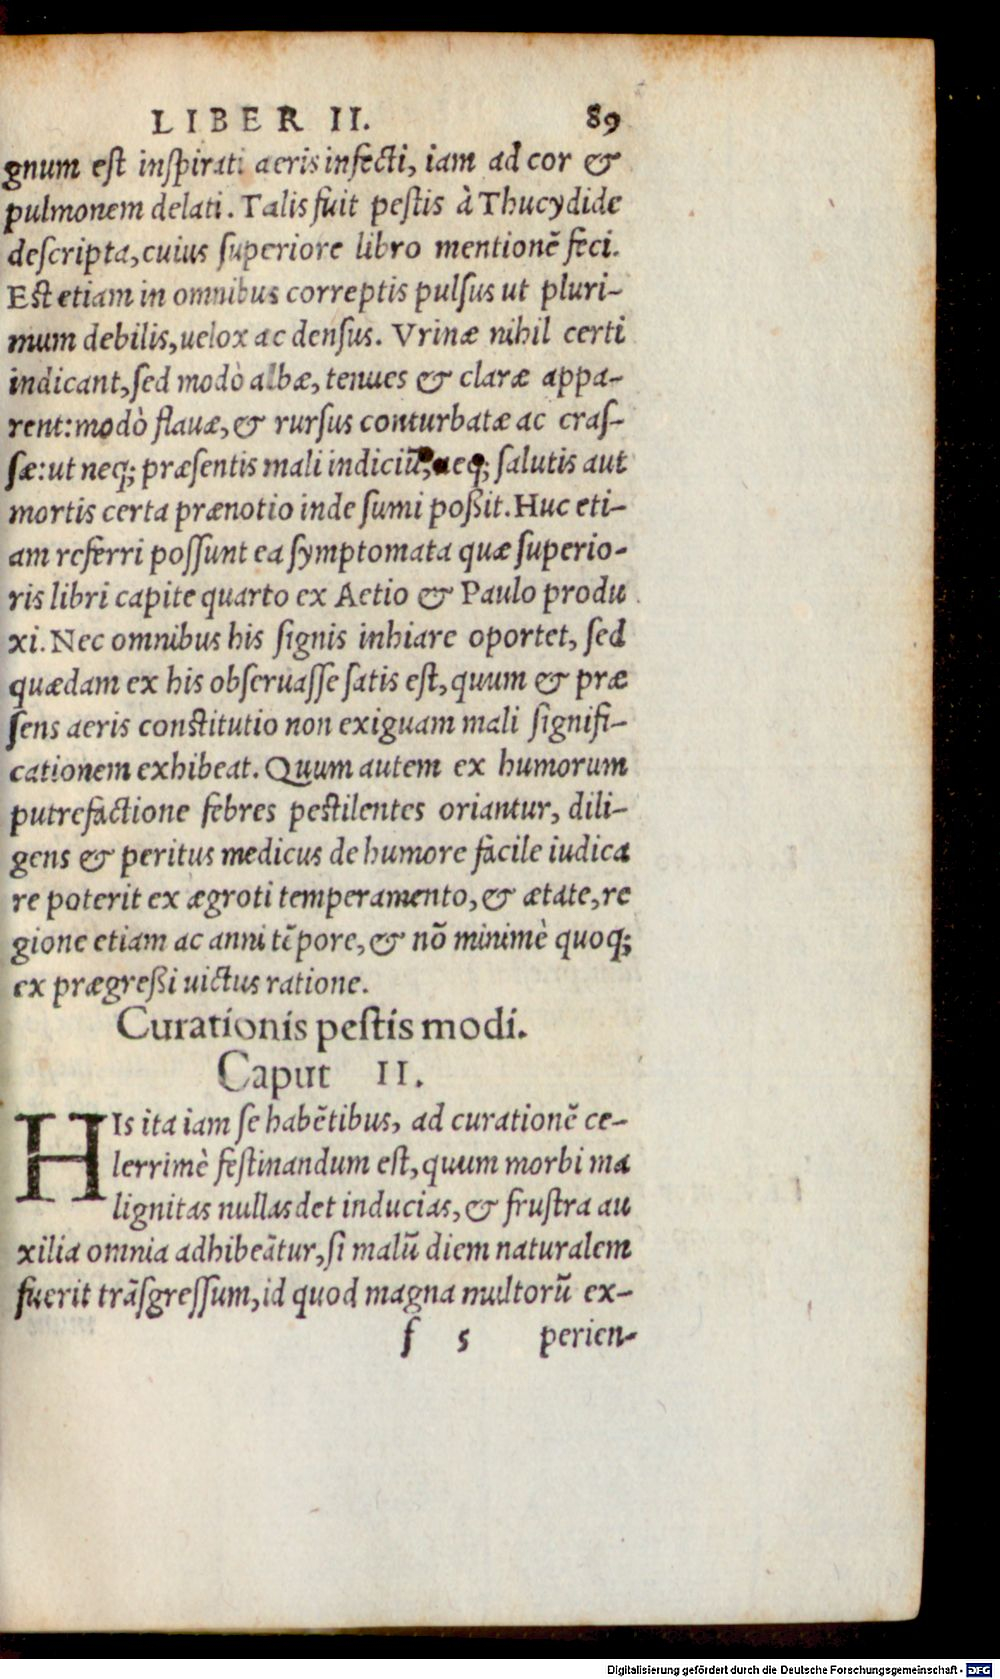 LIBER II. 89
gnum eſt inſpirati aeris infecti, iam ad cor &
pulmonem delati. Talis fuit peſtis à Thucydide
deſcripta, cuius ſuperiore libro mentionẽ feci.
Eſt etiam in omnibus correptis pulſus ut pluri-
mum debilis, uelox ac denſus. Vrinæ nihil certi
indicant, ſed modò albæ, tenues & claræ appa-
rent: modò flauæ, & rurſus conturbatæ ac craſ-
ſæ: ut neq; præſentis mali indiciũ, neq; ſalutis aut
mortis certa prænotio inde ſumi poßit. Huc eti-
am referri poſſunt ea ſymptomata quæ ſuperio-
ris libri capite quarto ex Aetio & Paulo produ
xi. Nec omnibus his ſignis inhiare oportet, ſed
quædam ex his obſeruaſſe ſatis eſt, quum & præ
ſens aeris conſtitutio non exiguam mali ſignifi-
cationem exhibeat. Quum autem ex humorum
putrefactione febres peſtilentes oriantur, dili-
gens & peritus medicus de humore facile iudica
re poterit ex ægroti temperamento, & ætate, re
gione etiam ac anni tẽpore, & nõ minimè quoq;
ex prægreßi uictus ratione.
Curationis peſtis modi.
Caput II.
HIs ita iam ſe habẽtibus, ad curationẽ ce-
lerrimè feſtinandum eſt, quum morbi ma
lignitas nullas det inducias, & fruſtra au
xilia omnia adhibeãtur, ſi malũ diem naturalem
fuerit trãſgreſſum, id quod magna multorũ ex-
f 5 perien-
Digitalisierung gefördert durch die Deutsche Forschungsgemeinschaft - DFG